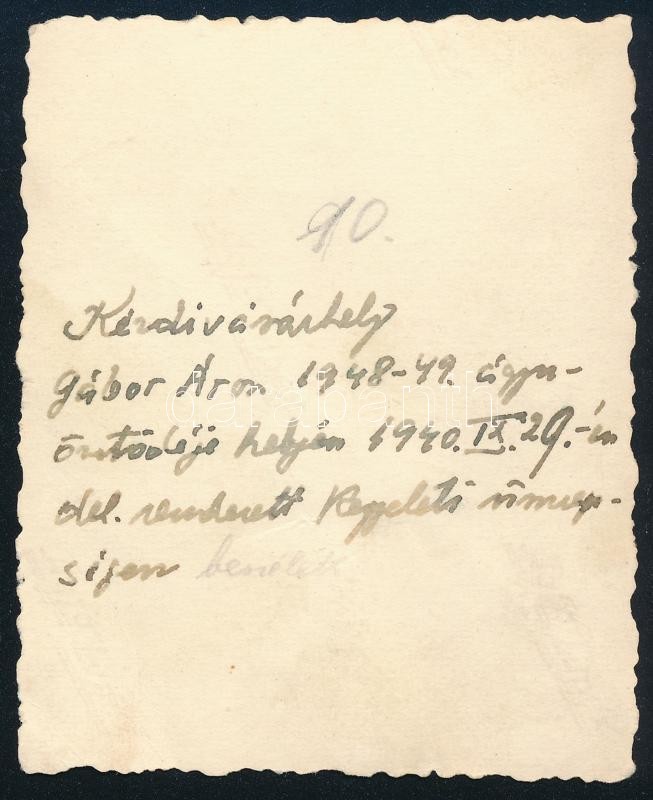 90.
Kézdivásárhely
Gábor Áron 1948-49. ágyu-
öntödéje helyén 1940. IX. 29.-én
del. rendezett kegyeleti ünnep-
ségen beszélek
darabanth